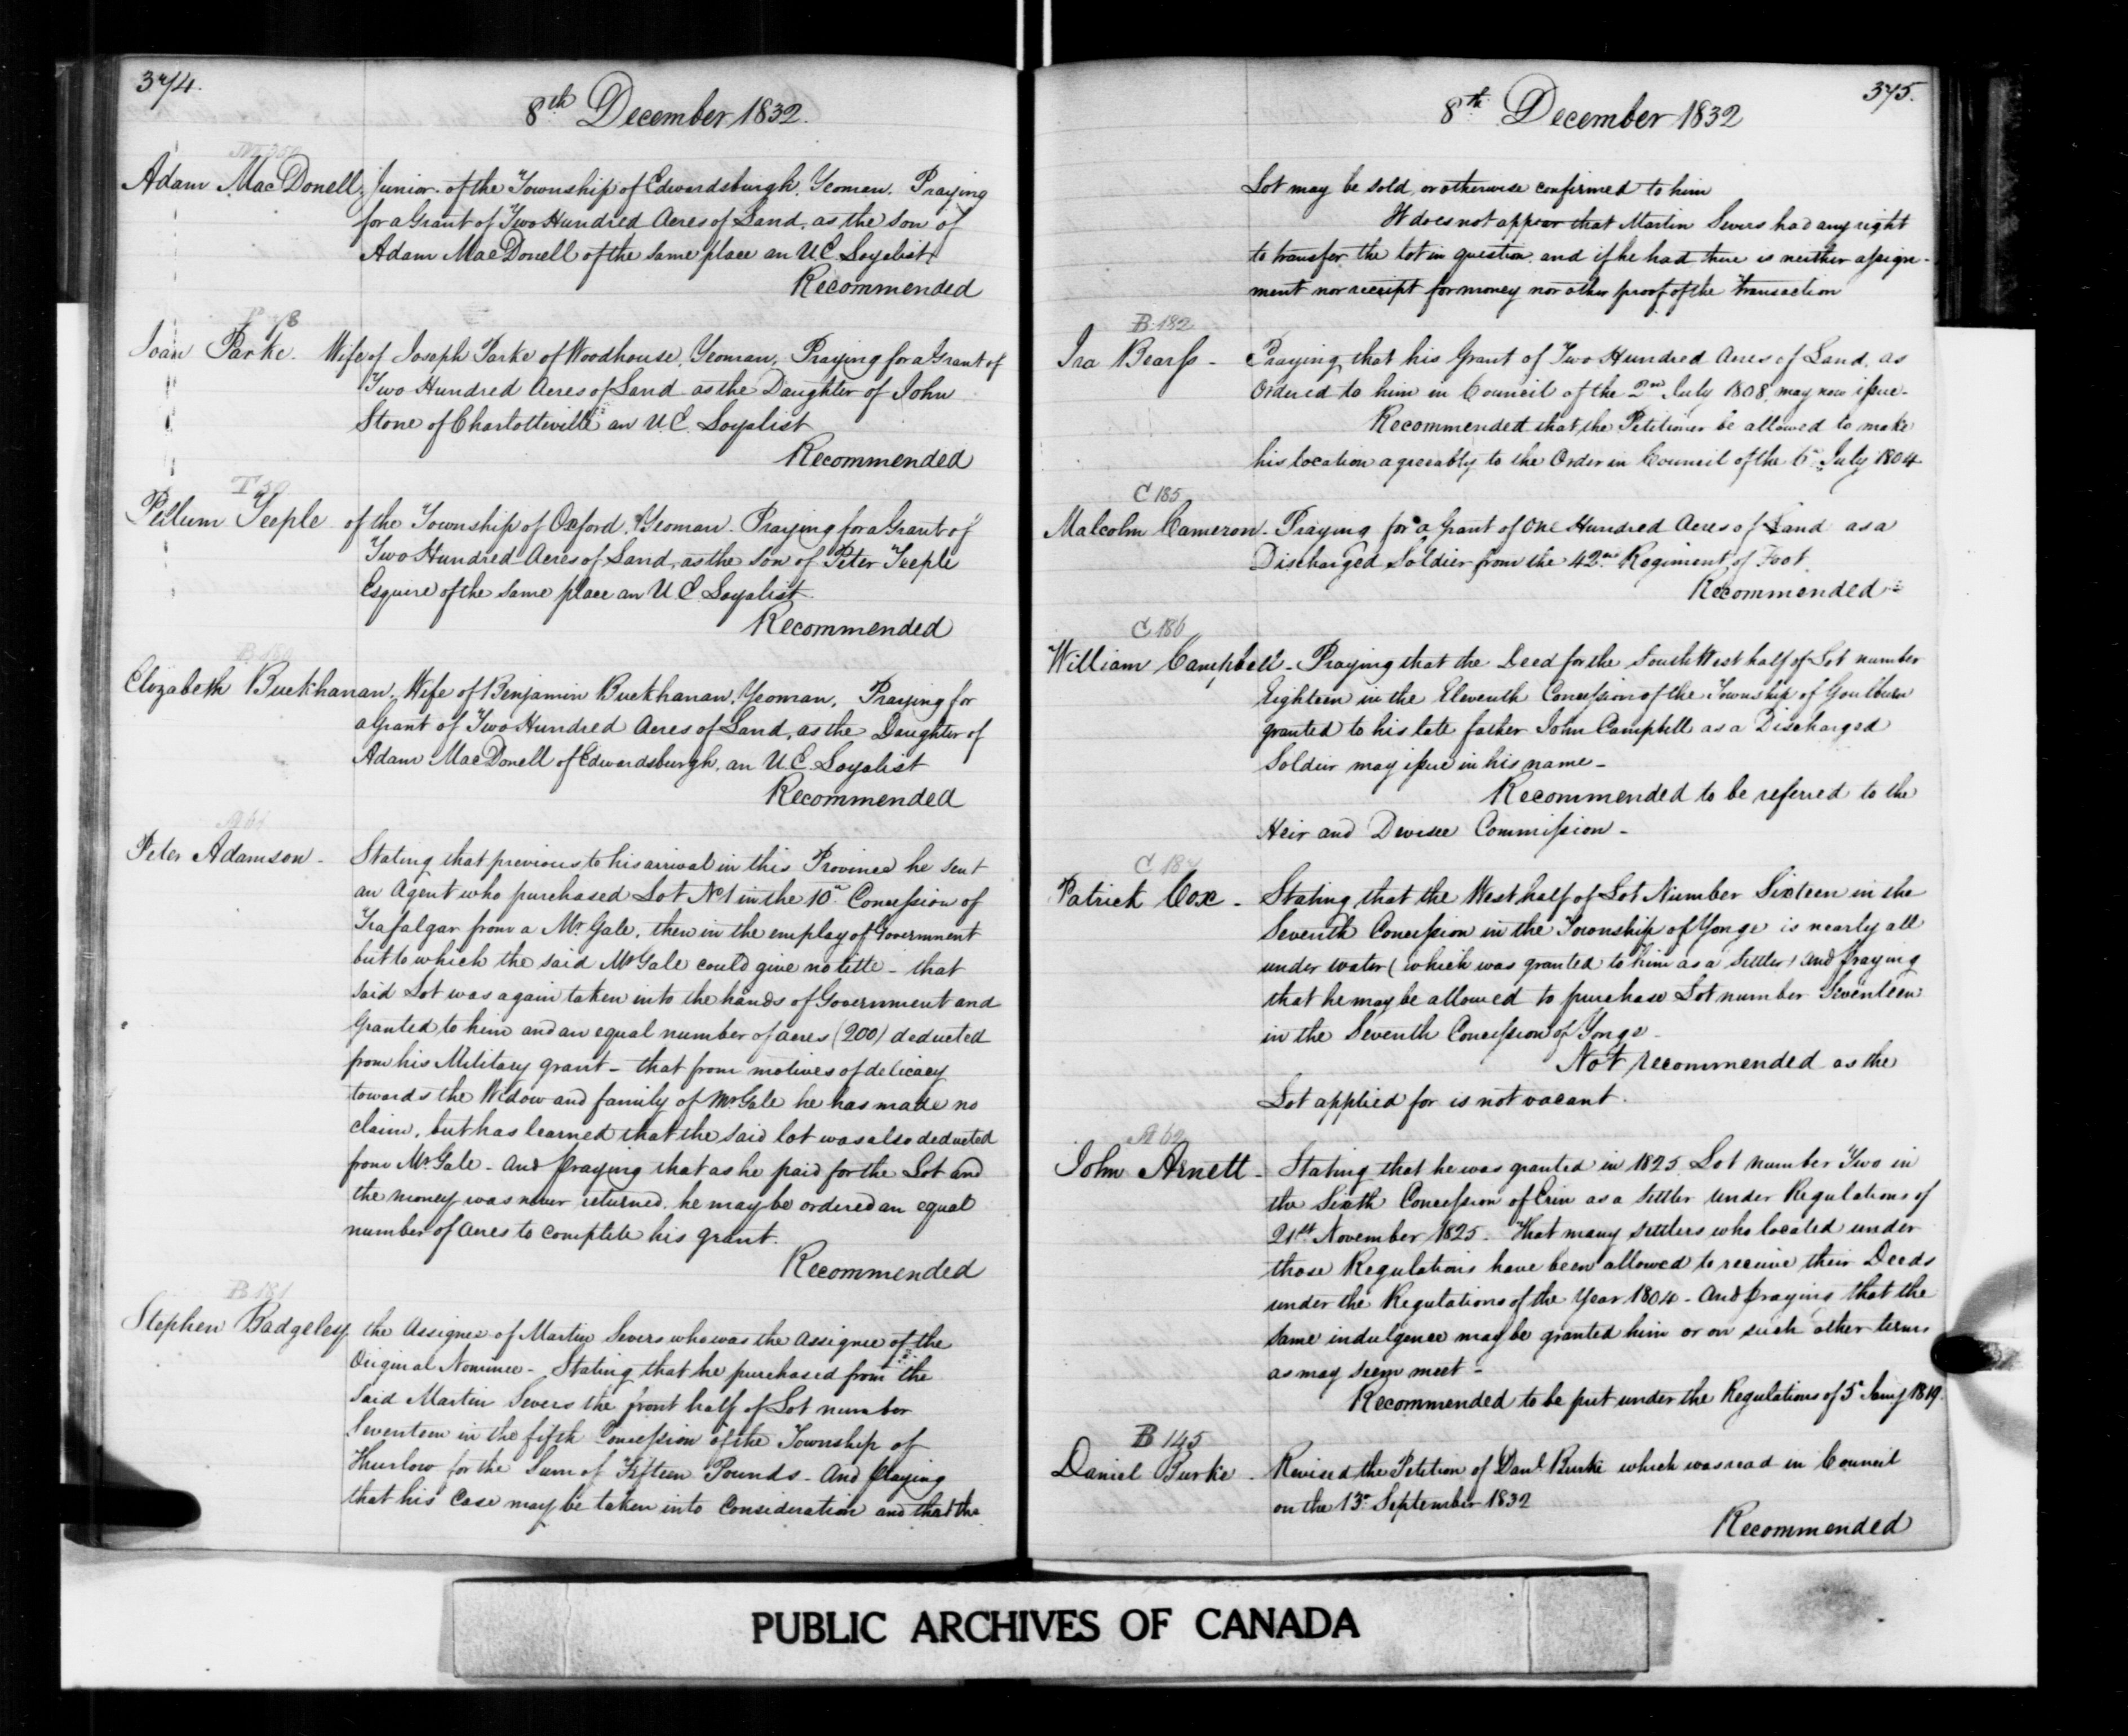 374.
8th December 1832.
M 350
Adam MacDonell, Junior of the Township of Edwardsburgh, Yeoman. Praying
for a Grant of Two Hundred Acres of Land, as the Son of
Adam MacDonell of the same place an U.E. Loyalist
Recommended
P 78
Joan Parke. Wife of Joseph Parke of Woodhouse, Yeoman, Praying for a Grant of
Two Hundred Acres of Land as the Daughter of John
Stone of Charlotteville an U.E. Loyalist
Recommended
T 50
Pellum Teeple of the Township of Oxford, Yeoman. Praying for a Grant of
Two Hundred Acres of Land, as the Son of Peter Teeple
Esquire of the same place an U E Loyalist.
Recommended
B 180
Elizabeth Buckhanan, Wife of Benjamin Buckhanan, Yeoman, Praying for
a Grant of Two Hundred Acres of Land, as the Daughter of
Adam MacDonell of Edwardsburgh, an U.E. Loyalist
Recommended
A 61
Peter Adamson - Stating that previous to his arrival in this Province he sent
an Agent who purchased Lot No 1 in the 10th Concession of
Trafalgar from a Mr Gale, then in the employ of Government
but to which the said Mr Gale could give no title - that
said Lot was again taken into the hands of Government and
Granted to him and an equal number of acres (200) deducted
from his Military grant - that from motives of delicacy
towards the Widow and family of Mr Gale he has made no
claim, but has learned that the said lot was also deducted
from Mr Gale - And Praying that as he paid for the Lot and
the money was never returned, he may be ordered an equal
number of acres to complete his grant.
Recommended
B 181
Stephen Badgeley the Assignee of Martin Severs who was the Assignee of the
Original Nominee - Stating that he purchased from the
said Martin Severs the front half of Lot number
Seventeen in the fifth Concession of the Township of
Thurlow for the Sum of Fifteen Pounds - And Praying
that his Case may be taken into Consideration and that the
375.
8th December 1832
Lot may be sold, or otherwise confirmed to him
It does not appear that Martin Severs had any right
to transfer the lot in question, and if he had there is neither assign-
ment nor receipt for money nor other proof of the transaction
B 182
Ira Bearss - Praying that his Grant of Two Hundred Acres of Land, as
Ordered to him in Council of the 2nd July 1808, may now issue -
Recommended that the Petitioner be allowed to make
his location agreeably to the Order in Council of the 6th July 1804
C 185
Malcolm Cameron - Praying for a Grant of One Hundred Acres of Land as a
Discharged Soldier from the 42nd Regiment of Foot
Recommended
C 186
William Campbell - Praying that the Deed for the South West half of Lot number
Eighteen in the Eleventh Concession of the Township of Goulburn
granted to his late father John Campbell as a Discharged
Soldier may issue in his name -
Recommended to be referred to the
Heir and Devisee Commission -
C 187
Patrick Cox - Stating that the West half of Lot Number Sixteen in the
Seventh Concession in the Township of Yonge is nearly all
under water (which was granted to him as a Settler) and Praying
that he may be allowed to purchase Lot number Seventeen
in the Seventh Concession of Yonge -
Not recommended as the
Lot applied for is not vacant.
A 62
John Arnett - Stating that he was granted in 1825 Lot number Two in
the Sixth Concession of Erin as a Settler under Regulations of
21st November 1825. That many settlers who located under
those Regulations have been allowed to receive their Deeds
under the Regulations of the Year 1804 - And Praying that the
same indulgence may be granted him or on such other terms
as may seem meet -
Recommended to be put under the Regulations of 5th Jany 1819.
B 145
Daniel Burke - Revised the Petition of Danl Burke which was read in Council
on the 13th September 1832
Recommended
PUBLIC ARCHIVES OF CANADA